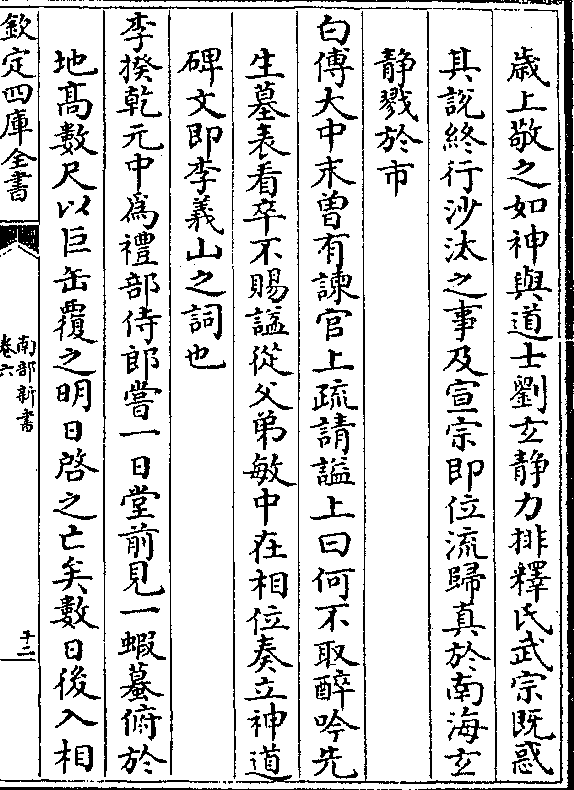 歳上敬之如神與道士劉𤣥静力排釋氏武宗既惑
其說終行沙汰之事及宣宗即位流歸真於南海𤣥
静戮於市
白傅大中末曽有諫官上疏請諡上曰何不取醉吟先
生墓表看卒不賜諡從父弟敏中在相位奏立神道
碑文即李義山之詞也
李揆乾元中為禮部侍郎嘗一日堂前見一蝦蟇俯於
地髙數尺以巨缶覆之明日啓之亡矣數日後入相
欽定四庫全書
南部新書
卷六
十二